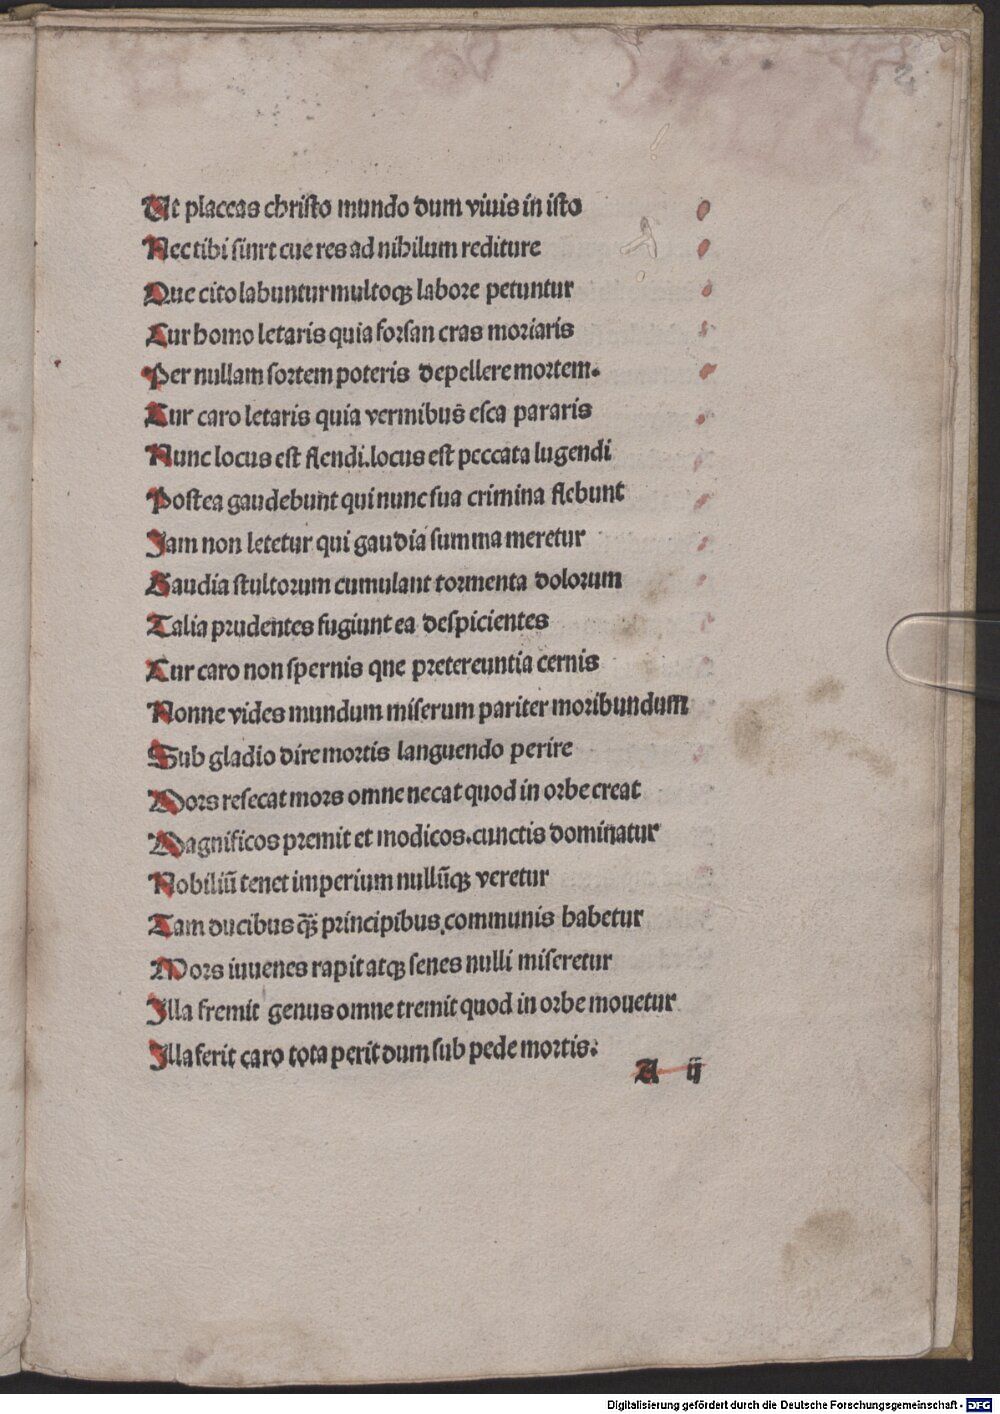 2
Ut placeas christo mundo dum viuis in isto
Nec tibi sinrt cue res ad nihilum rediture
Que cito labuntur multoqꝫ labore petuntur
Cur homo letaris quia forsan cras moriaris
Per nullam sortem poteris depellere mortem.
Cur caro letaris quia vermibus̄ esca pararis
Nunc locus est flendi.locus est peccata lugendi
Postea gaudebunt qui nunc sua crimina flebunt
Jam non letetur qui gaudia summa meretur
Gaudia stultorum cumulant tormenta dolorum
Talia prudentes fugiunt ea despicientes
Cur caro non spernis qne pretereuntia cernis
Nonne vides mundum miserum pariter moribundum
Sub gladio dire mortis languendo perire
Mors resecat mors omne necat quod in orbe creat
Magnificos premit et modicos.cunctis dominatur
Nobiliū tenet imperium nullūqꝫ veretur
Tam ducibus q̄ꝫ principibus.communis habetur
Mors iuuenes rapit atqꝫ senes nulli miseretur
Illa fremit genus omne tremit quod in orbe mouetur
Illa ferit caro tota perit dum sub pede mortis.
A ij
Digitalisierung gefördert durch die Deutsche Forschungsgemeinschaft - DFG